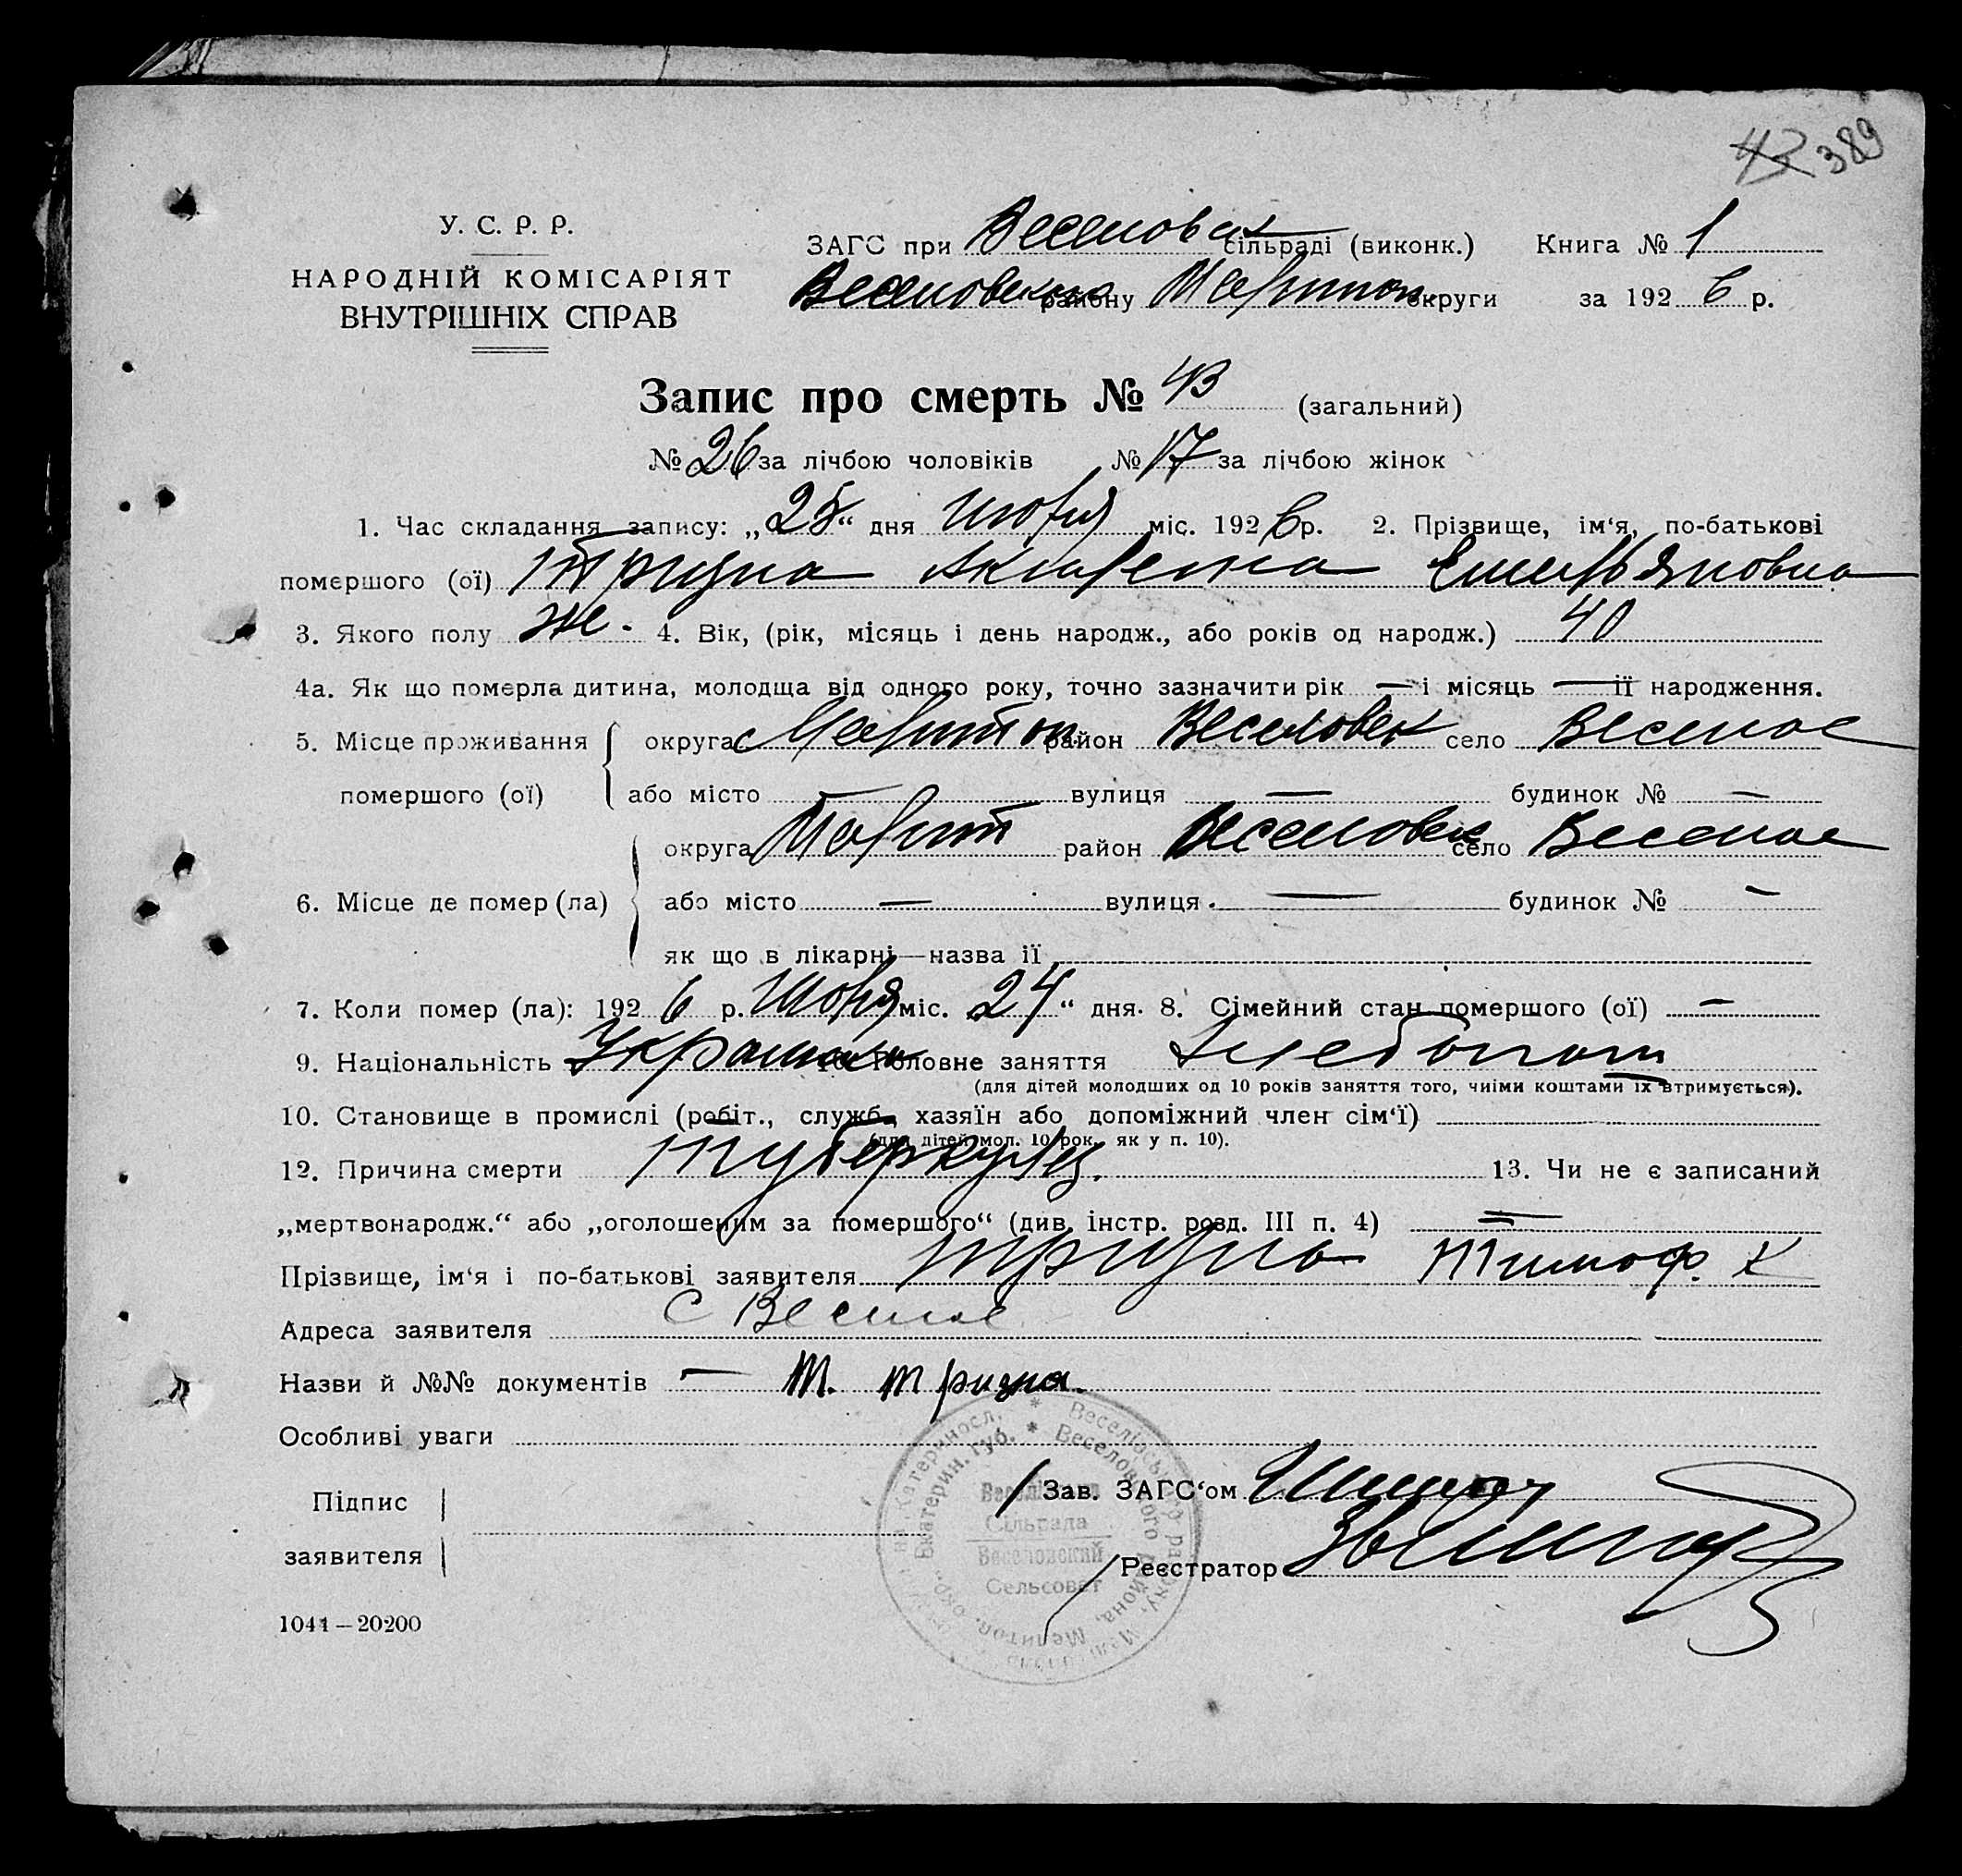 43 389
У. С. Р. Р.
НАРОДНІЙ КОМІСАРІЯТ
ВНУТРІШНІХ СПРАВ
ЗАГС при Веселовск сільраді (виконк.) Книга № 1
Веселовского району округи за 1926 р.
Запис про смерть № 43 (загальний)
№ 26 за лічбою чоловіків № 17 за лічбою жінок
1. Час складання запису: „25“ дня міс. 1926 р. 2. Прізвище, ім‘я, по-батькові
помершого (ої) Тризна Емельяновна
3. Якого полу же. 4. Вік, (рік, місяць і день народж., або років од народж.) 40
4а. Як що померла дитина, молодща від одного року, точно зазначити рік — і місяць — її народження.
5. Місце проживання округа район Веселовск село Веселое
помершого (ої) або місто — вулиця — будинок № —
округа район Веселовск село Веселое
6. Місце де помер (ла) або місто — вулиця — будинок № —
як що в лікарні—назва її
7. Коли помер (ла): 1926 р. міс. 24“ дня. 8. Сімейний стан помершого (ої) —
9. Національність Головне заняття Хлебопаш
(для дітей молодших од 10 років заняття того, чиіми коштами їх втримується).
10. Становище в промислі (робіт., служб., хазяїн або допоміжний член сім‘ї)
(для дітей мол. 10 рок. як у п. 10).
12. Причина смерти туберкулез. 13. Чи не є записаний
„мертвонародж.“ або „оголошеним за помершого“ (див. інстр. розд. III п. 4) —
Прізвище, ім‘я і по-батькові заявителя Тризна Тимоф. К
Адреса заявителя С Веселое
Назви й №№ документів — Т. Тризна.
Особливі уваги
Підпис
заявителя
Зав. ЗАГС‘ом
Реєстратор
Сільрада
Веселовский
Сельсовет
1041 – 20200